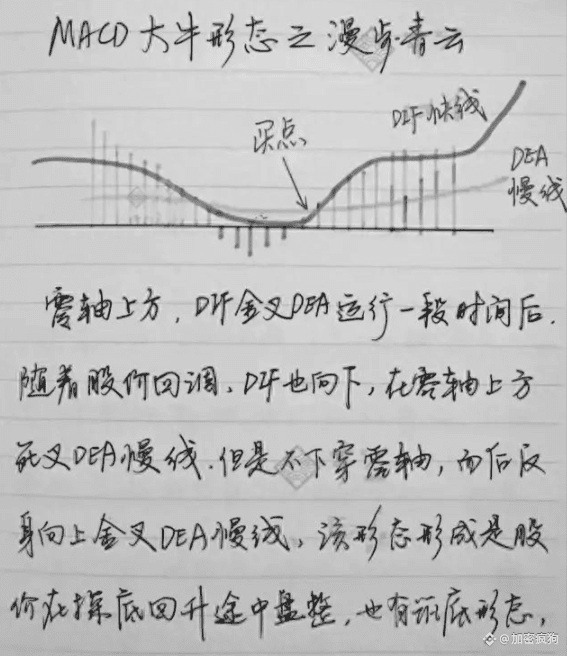 MACD大牛形态之漫步青云
DIF快线
买点
DEA
慢线
零轴上方,DIF金叉DEA运行一段时间后.
随着股价回调、DIF也向下,在零轴上方
死叉DEA慢线.但是不下穿零轴,而后反
身向上金叉DEA慢线,该形态形成是股
价在探底回升途中盘整,也有筑底形态,
@加密疯狗